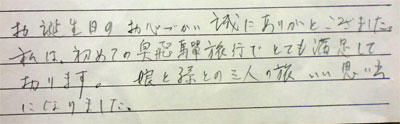 お誕生日のお心づかい誠にありがとうございました。
私は、初めての奥飛騨旅行でとても満足して
おります。 娘と孫との三人の旅いい思い出
になりました。